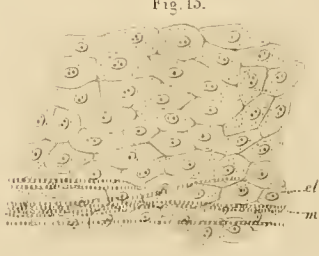 Fig. 15.
el
m